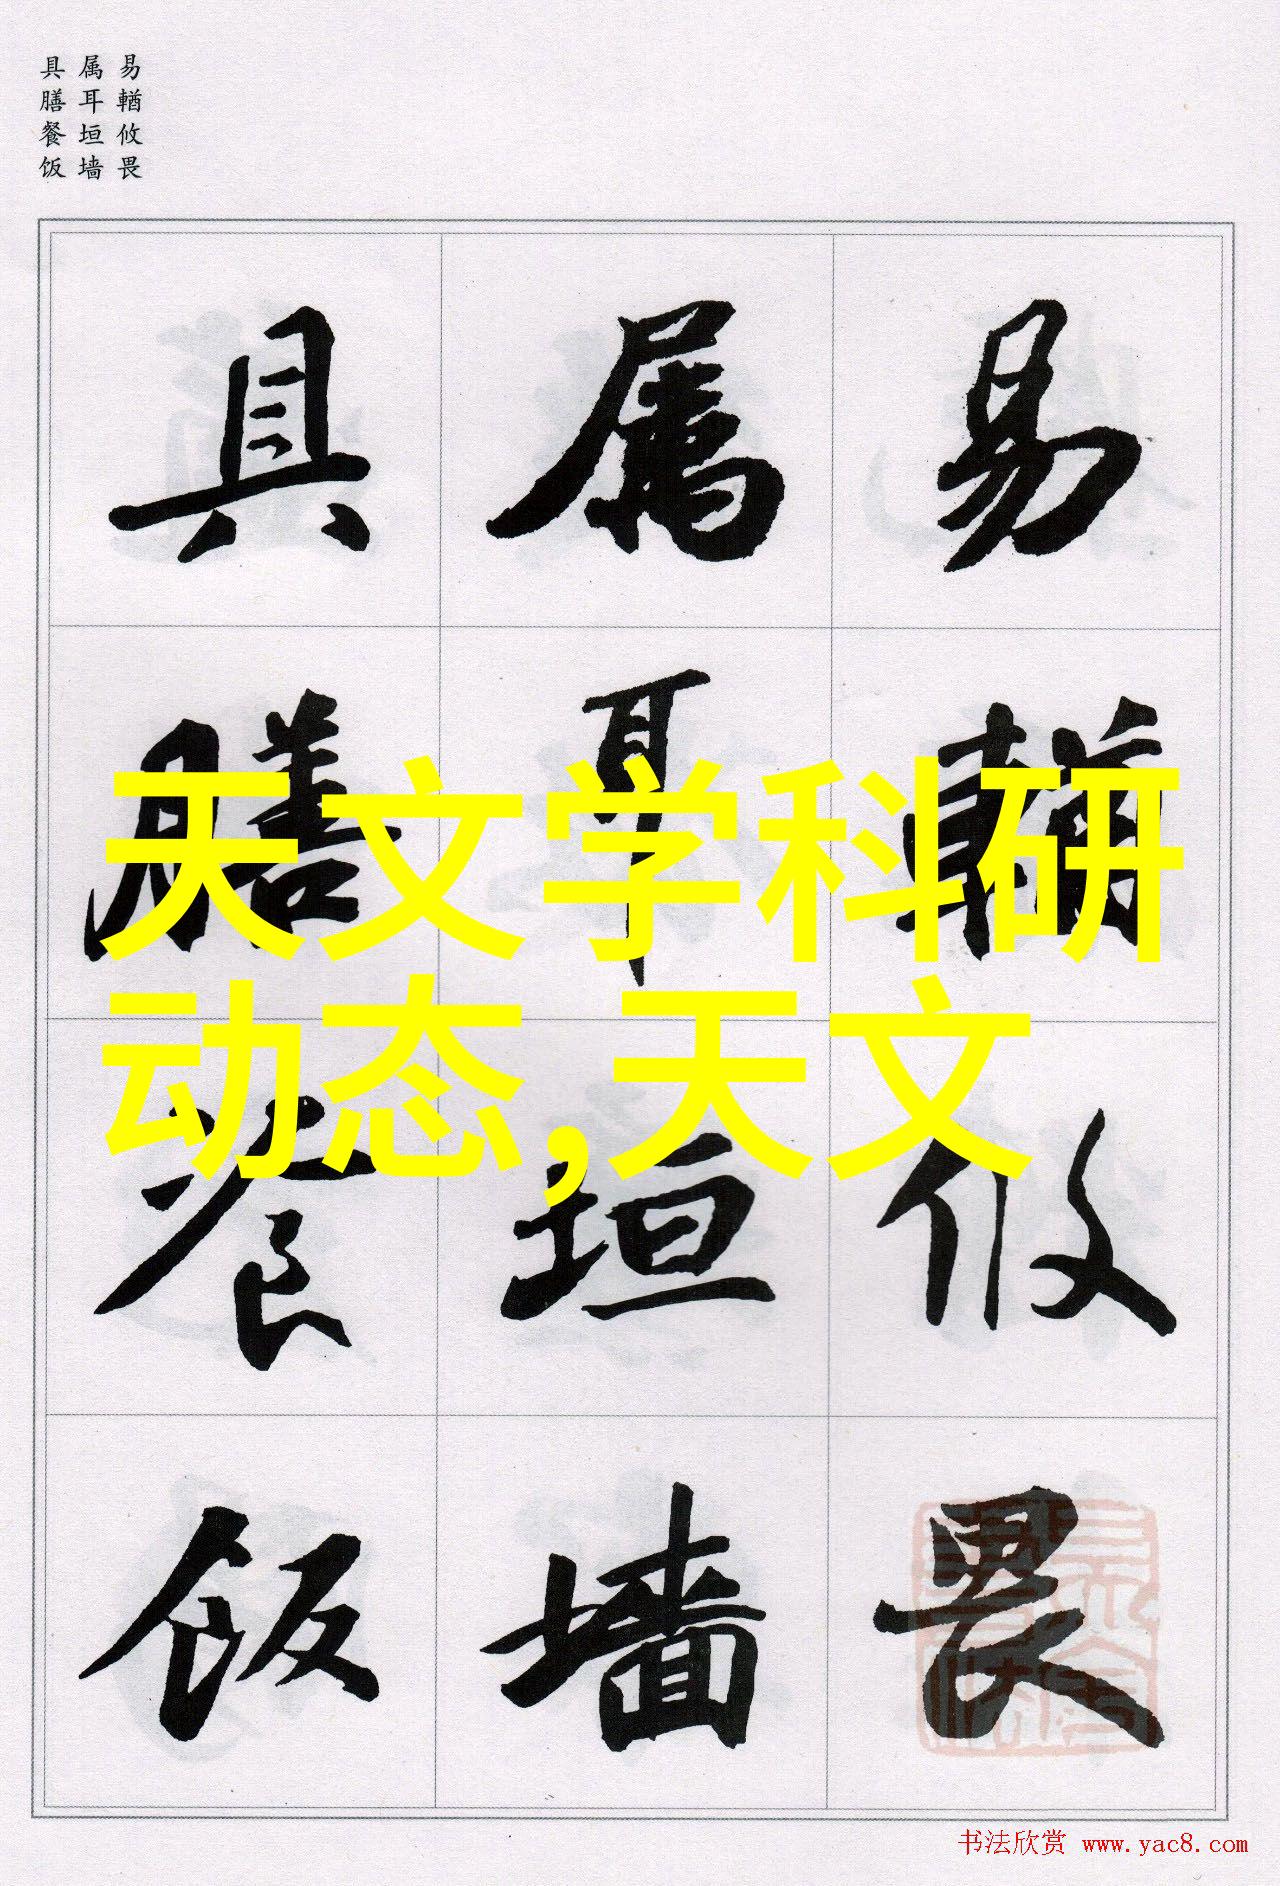 易輶攸畏
属耳垣墙
具膳餐饭
易輶攸畏
属耳垣墙
具膳餐饭
天文学科研
动态,天文
书法欣赏 www.yac8.com